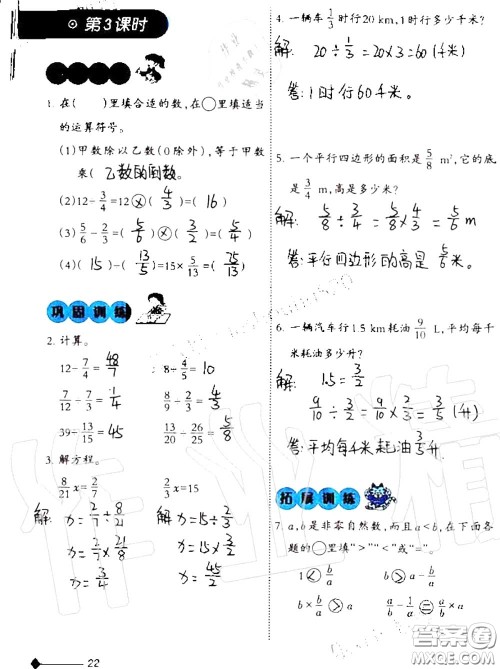 第3课时
1. 在( )里填合适的数,在○里填适当
的运算符号。
(1)甲数除以乙数(0除外),等于甲数
乘( 乙数的倒数。
(2) 12÷3/4=12⊗( 4/3 )=( 16 )
(3) 5/6÷2/3=( 5/6 )⊗( 3/2 )=( 5/4 )
(4)( 15 )÷( 13/5 )=15×5/13=( 75/13 )
巩固训练
2. 计算。
12÷7/4=48/7 8÷4/5=10
7/12÷7/3=1/4
39÷13/15=45 13/20÷26/25=5/8
3. 解方程。
8/21x=2/7 2/3x=15
解: x=2/7÷8/21 x=15÷2/3
x=2/7×21/8 x=15×3/2
x=3/4 x=45/2
22
4. 一辆车1/3时行20 km,1时行多少千米?
解: 20÷1/3=20×3=60(千米)
答:1时行60千米。
5. 一个平行四边形的面积是5/8 m²,它的底
是3/4 m,高是多少米?
解: 5/8÷3/4=5/8×4/3=5/6 m
答:平行四边形的高是5/6米。
6. 一辆汽车行1.5 km耗油9/10 L,平均每千
米耗油多少升?
解: 1.5=3/2
9/10÷3/2=3/5(升)
答:平均每千米耗油3/5升。
拓展训练
7. a,b是非零自然数,而且a<b,在下面各
题的○里填“>”“<”或“=”。
1<b/a b/a>a/b
b×b/a>a b÷1/a=b/a×b
作业精
答案圈
MXQE.COM